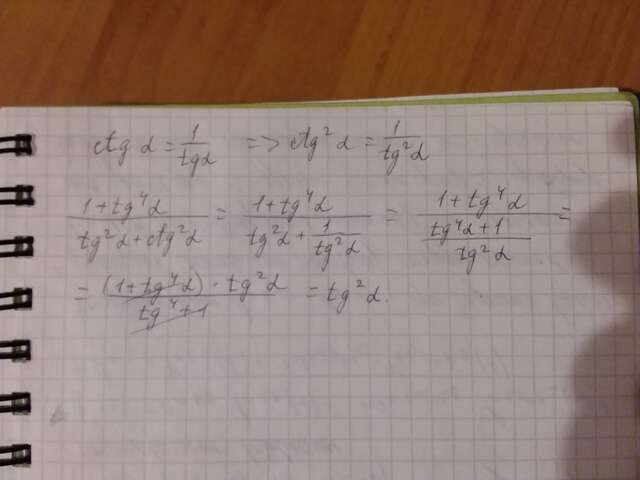 ctg α = 1/tg α => ctg² α = 1/tg² α
(1 + tg⁴ α)/(tg² α + ctg² α) = (1 + tg⁴ α)/(tg² α + 1/tg² α) = (1 + tg⁴ α)/((tg⁴ α + 1)/tg² α) =
= ((1 + tg⁴ α) · tg² α)/(tg⁴ + 1) = tg² α